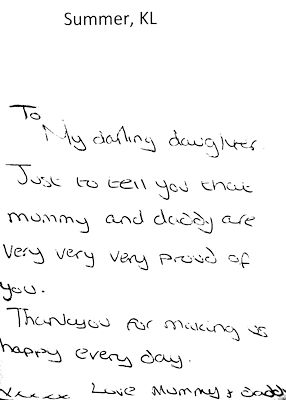 Summer, KL
To
My darling daughter
Just to tell you that
mummy and daddy are
very very very proud of
you.
Thankyou for making us
happy every day.
xxxxx Love Mummy & Daddy